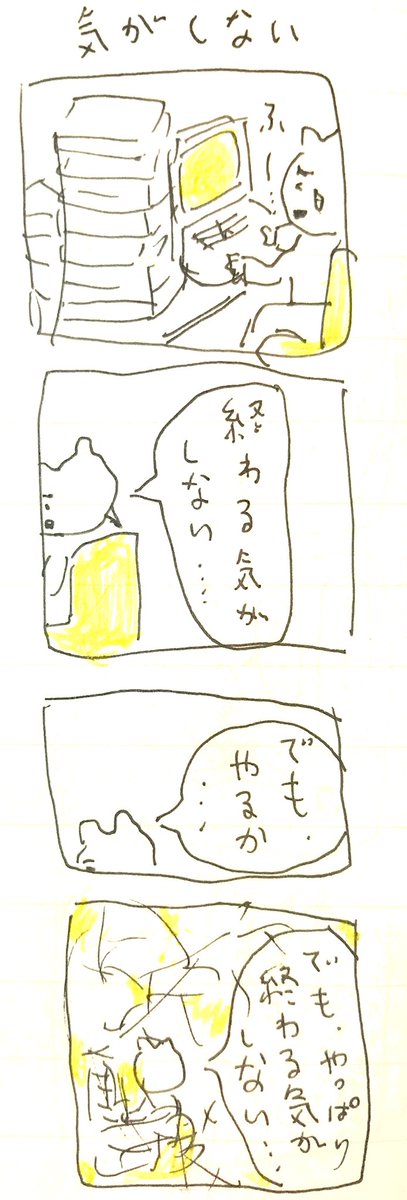 気がしない
ふー…
終わる気が
しない…
でも、
やるか
…
でも、やっぱり
終わる気が
しない…